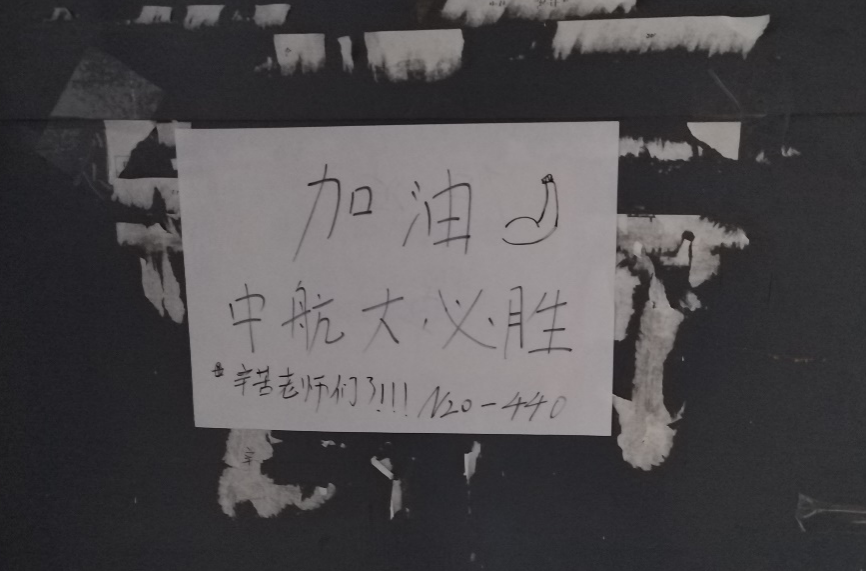 加油
中航大必胜
辛苦老师们了!!! N20-440